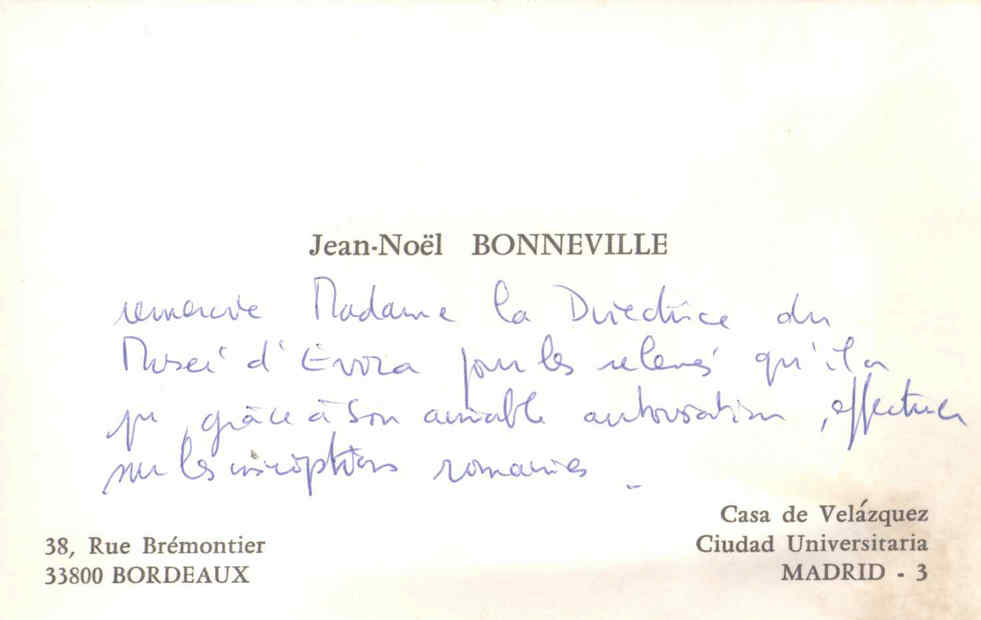 Jean-Noël BONNEVILLE
remercie Madame la Directrice du
Musée d'Evora pour les relevés qu'il a
pu, grâce à son aimable autorisation, effectuer
sur les inscriptions romaines.
38, Rue Brémontier
33800 BORDEAUX
Casa de Velázquez
Ciudad Universitaria
MADRID - 3